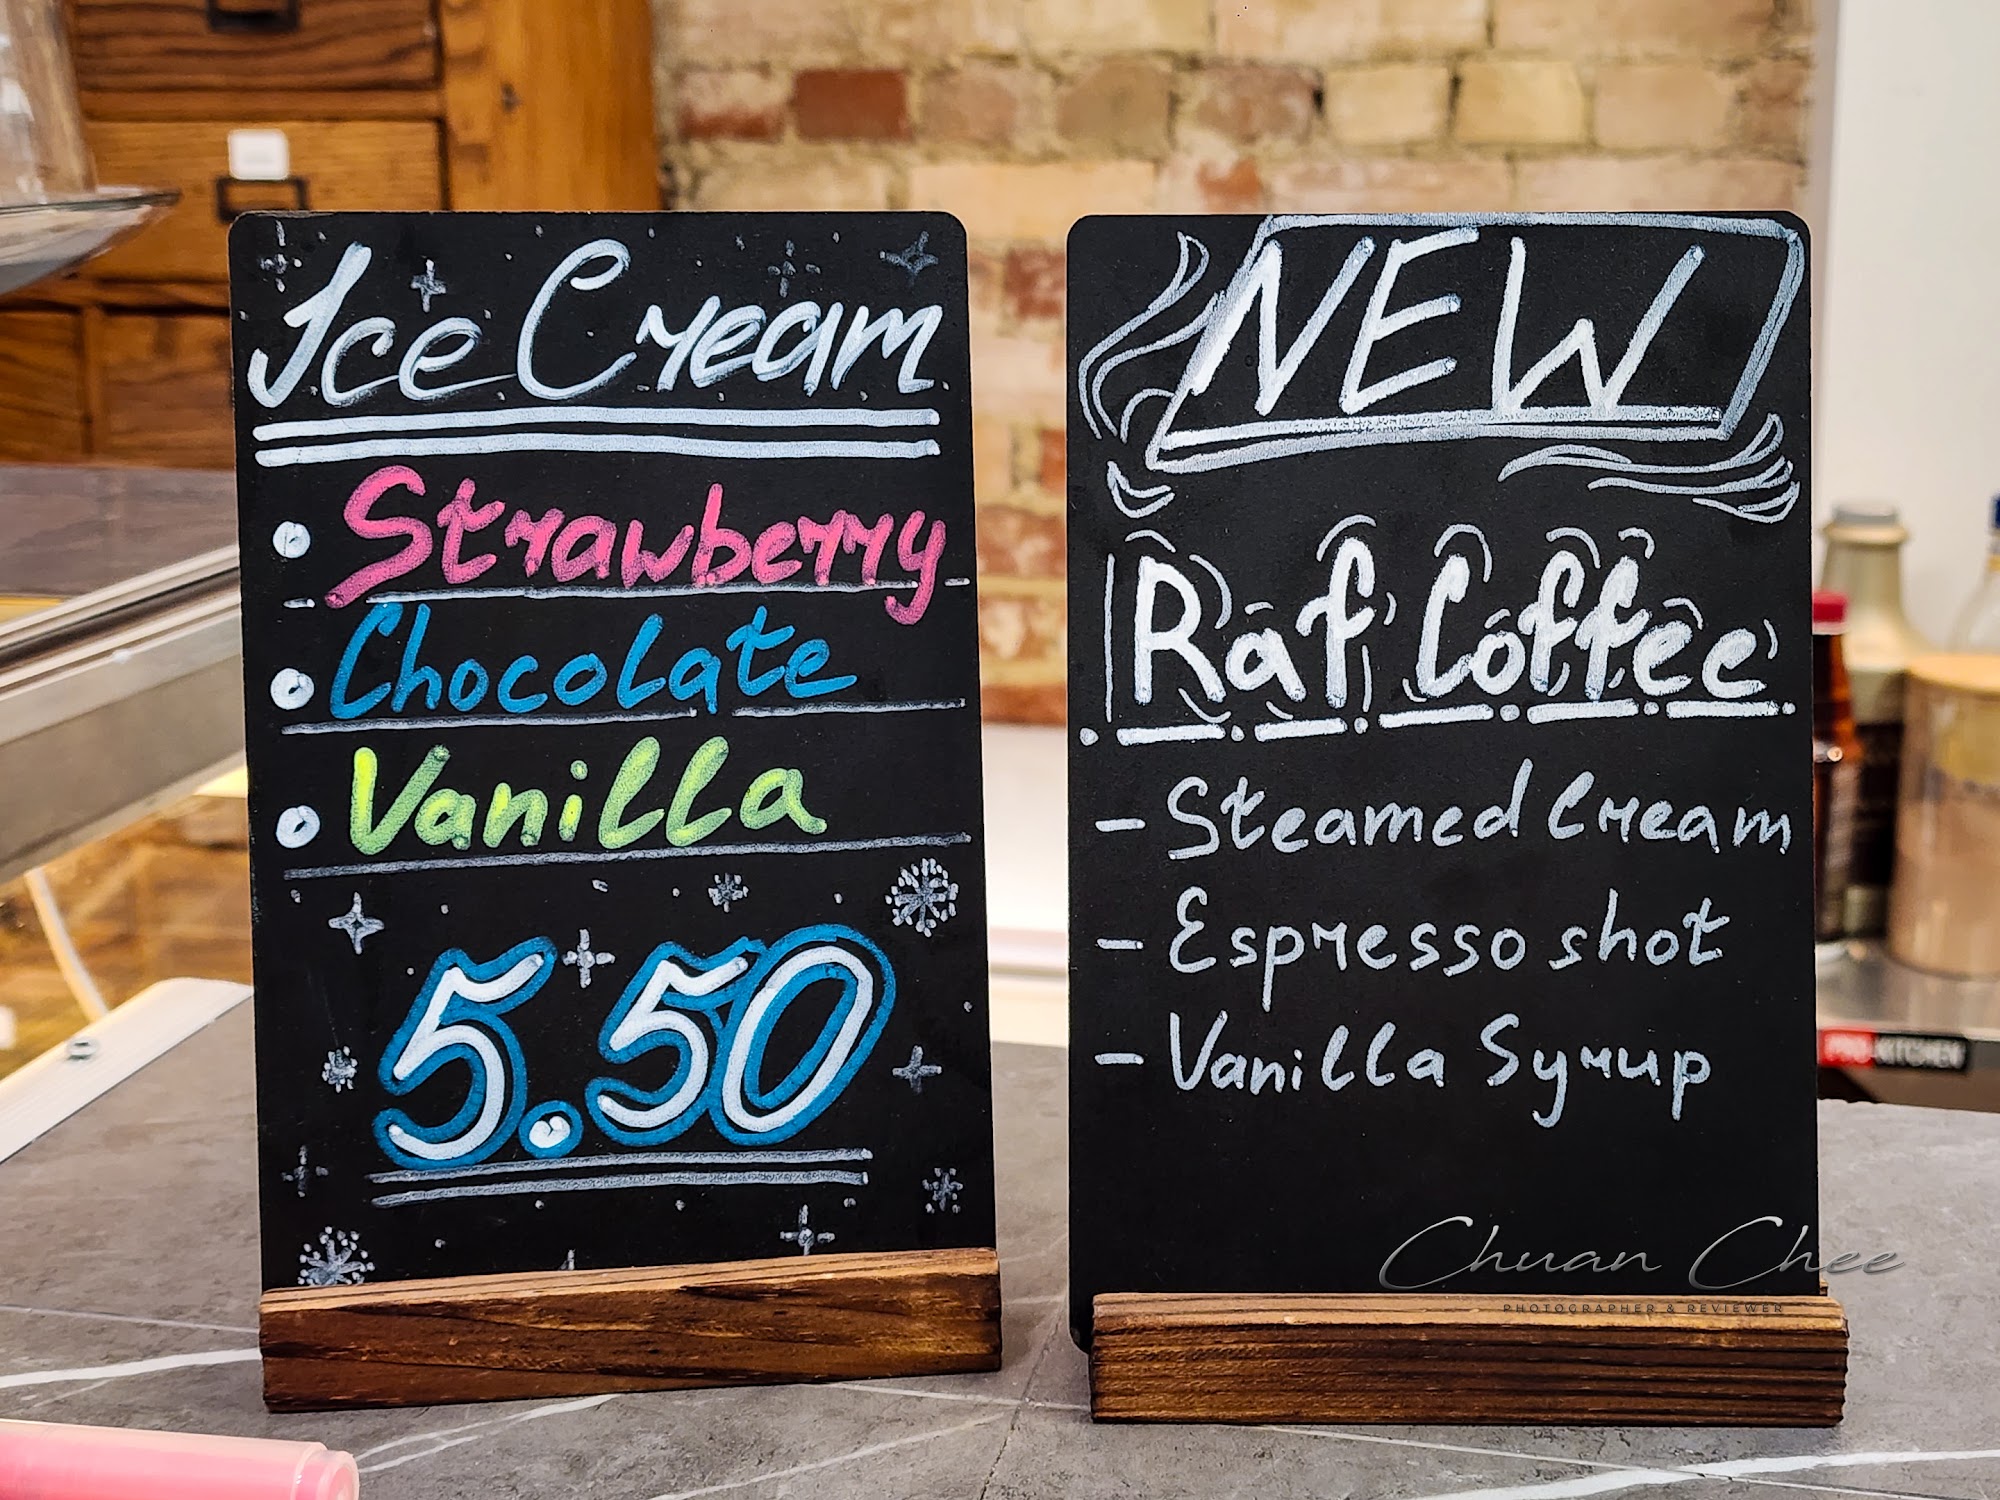 Ice Cream
Strawberry
Chocolate
Vanilla
5.50
NEW
Raf Coffee
- Steamed Cream
- Espresso shot
- Vanilla Syrup
PRO-KITCHEN
Chuan Chee
PHOTOGRAPHER & REVIEWER